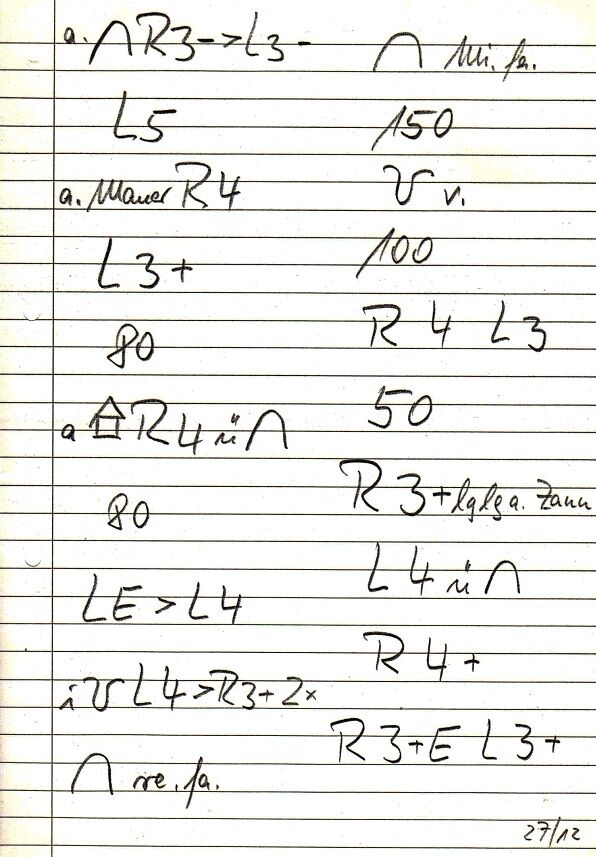 a. ∩ R3-->L3-
L5
a. Mauer R4
L3+
80
a R4 ü ∩
80
LE > L4
i V L4 > R3+ 2x
∩ re. fa.
∩ Mi. fa.
150
V v.
100
R 4 L3
50
R3+ lglg a. Zaun
L4 ü ∩
R 4 +
R3+E L3+
27/12